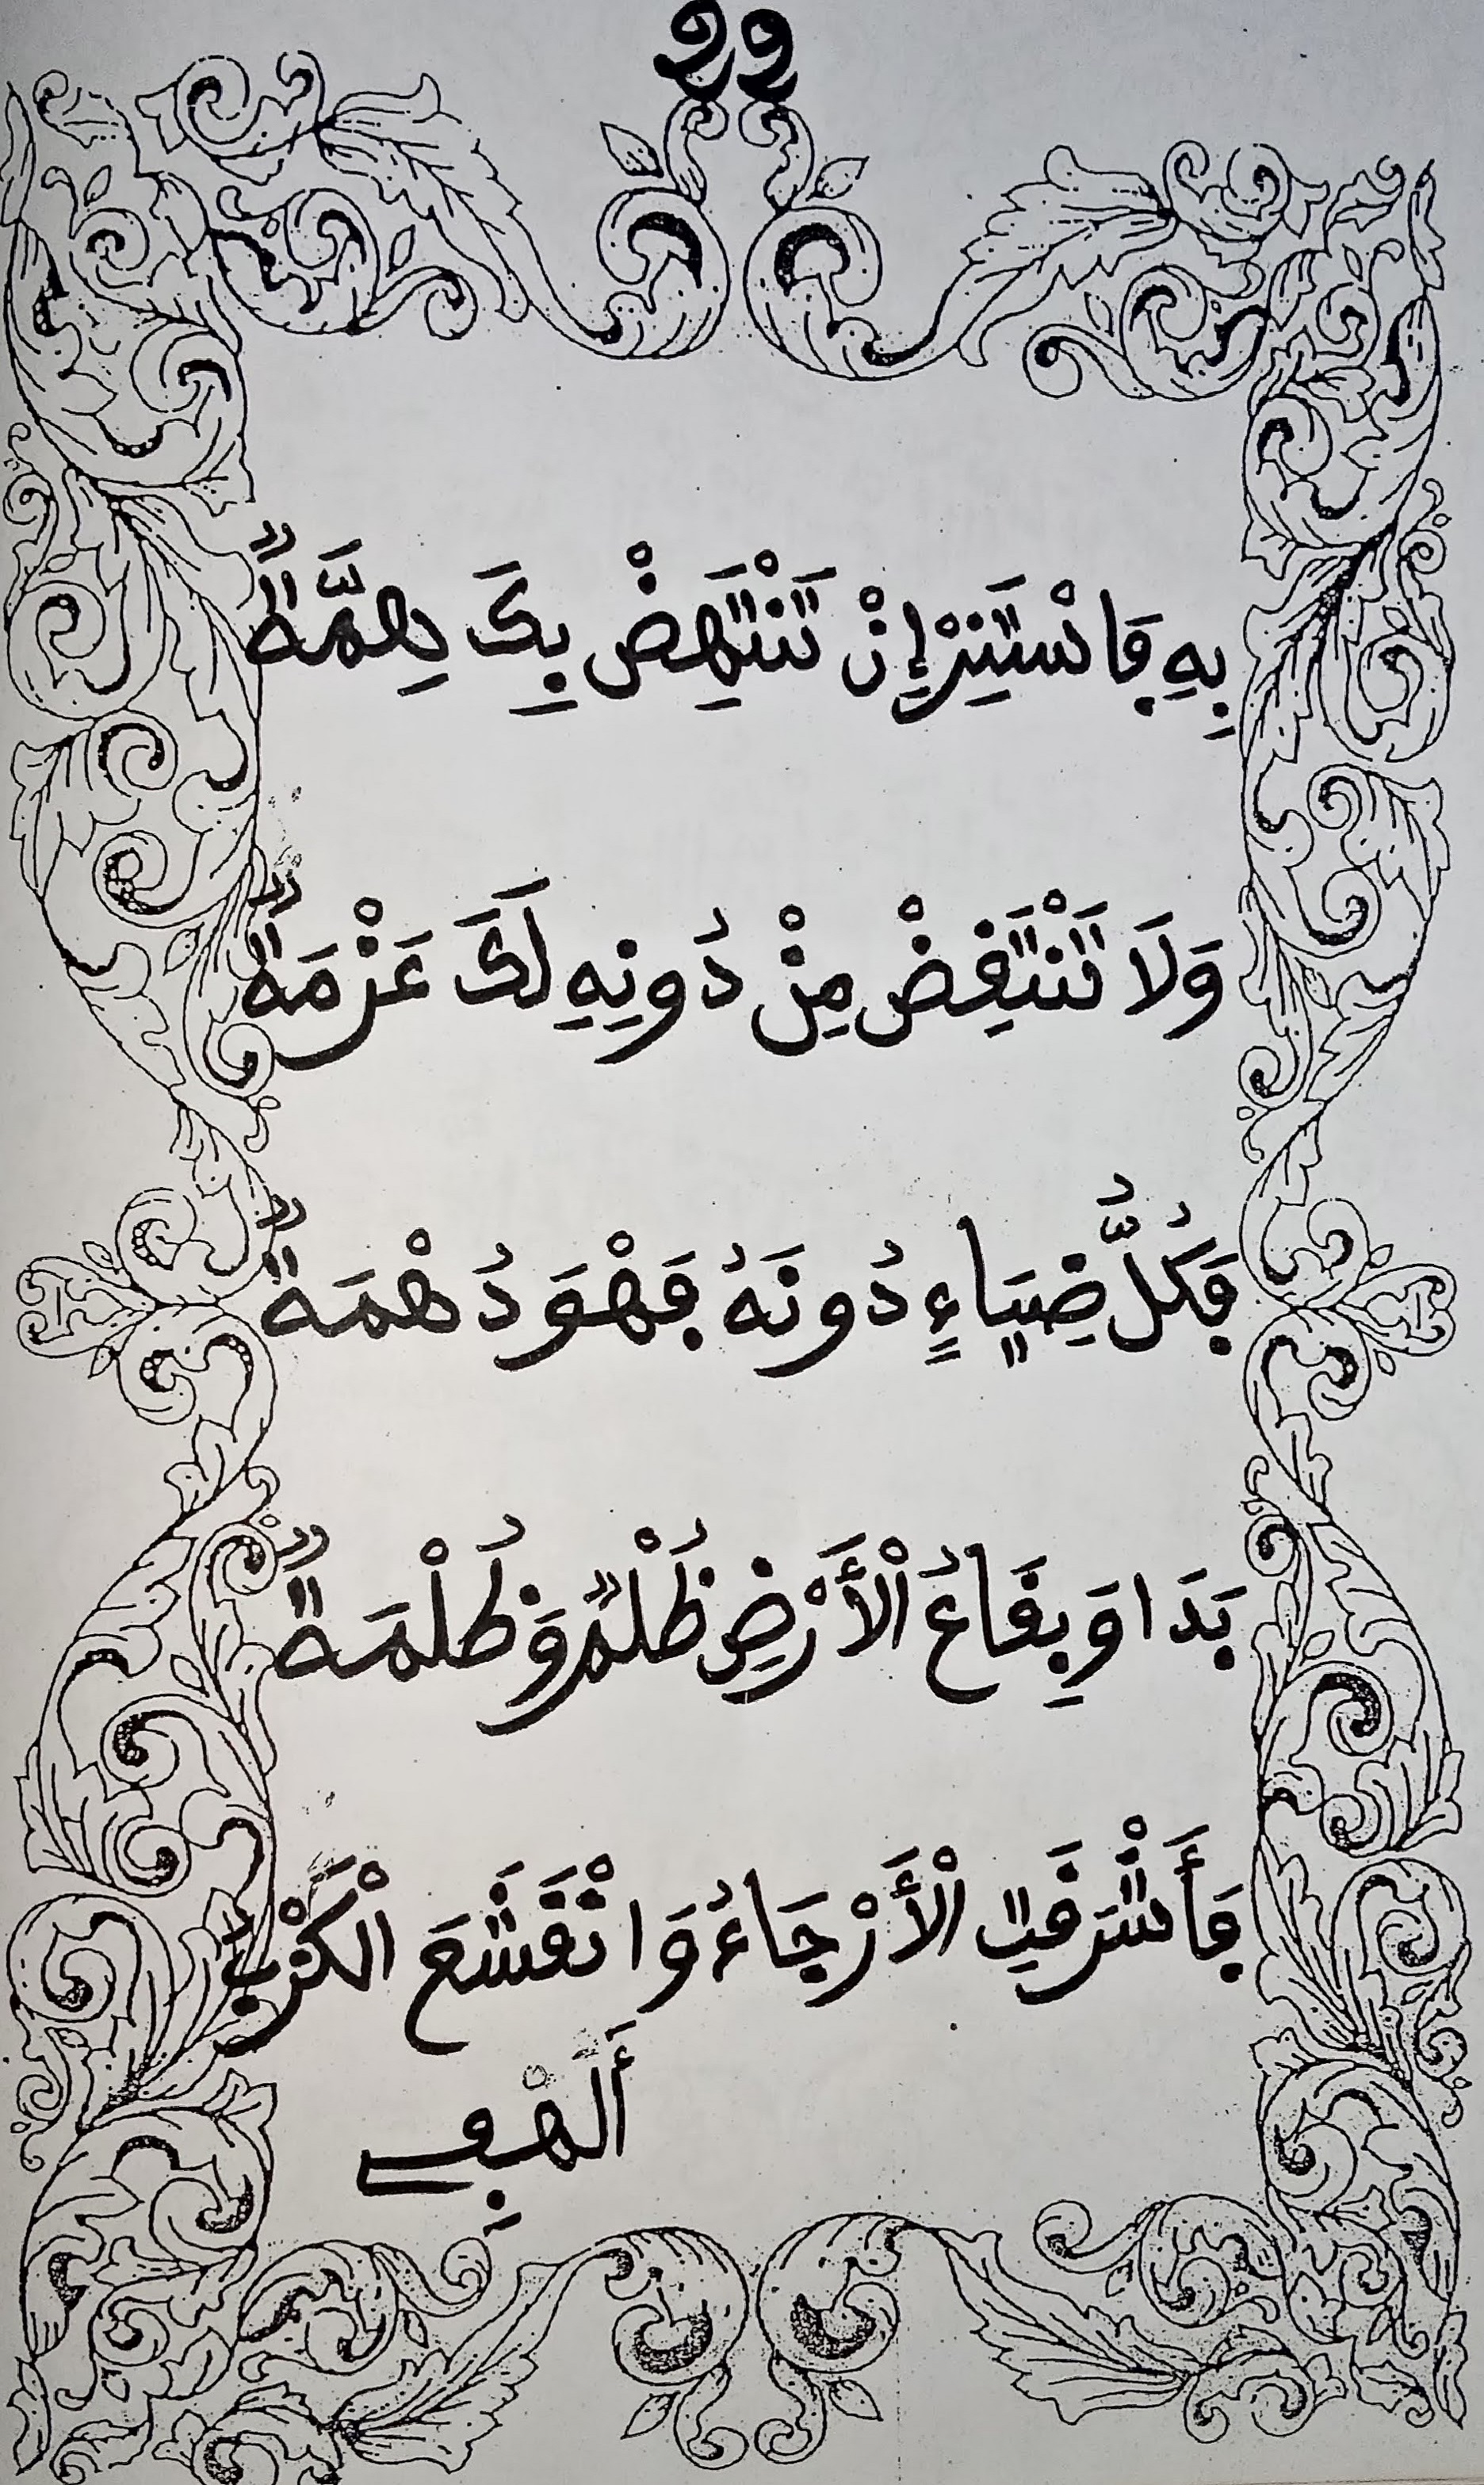 22
بِهِ فَاسْتَنِرْ إِنْ تَنْتَهِضْ بِكَ هِمَّةٌ
وَلَا تَنْتَفِضْ مِنْ دُونِهِ لَكَ عَزْمَةٌ
فَكُلُّ ضِيَاءٍ دُونَهُ فَهْوَ دُهْمَةٌ
بَدَا وَبِقَاعُ الْأَرْضِ ظُلْمٌ وَظُلْمَةٌ
فَأَشْرَقَتِ الْأَرْجَاءُ وَانْقَشَعَ الْكَرْبُ